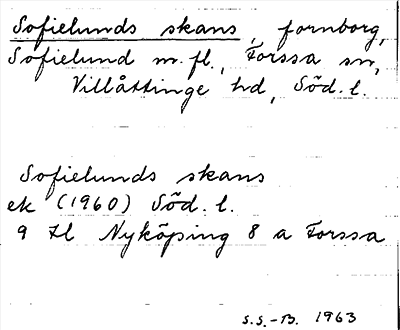 Sofielunds skans, fornborg,
Sofielund m. fl., Forssa sn,
Villåttinge hd, Söd. l.
Sofielunds skans
ek (1960) Söd. l.
9 H1 Nyköping 8 a Forssa
S.S.-B. 1963